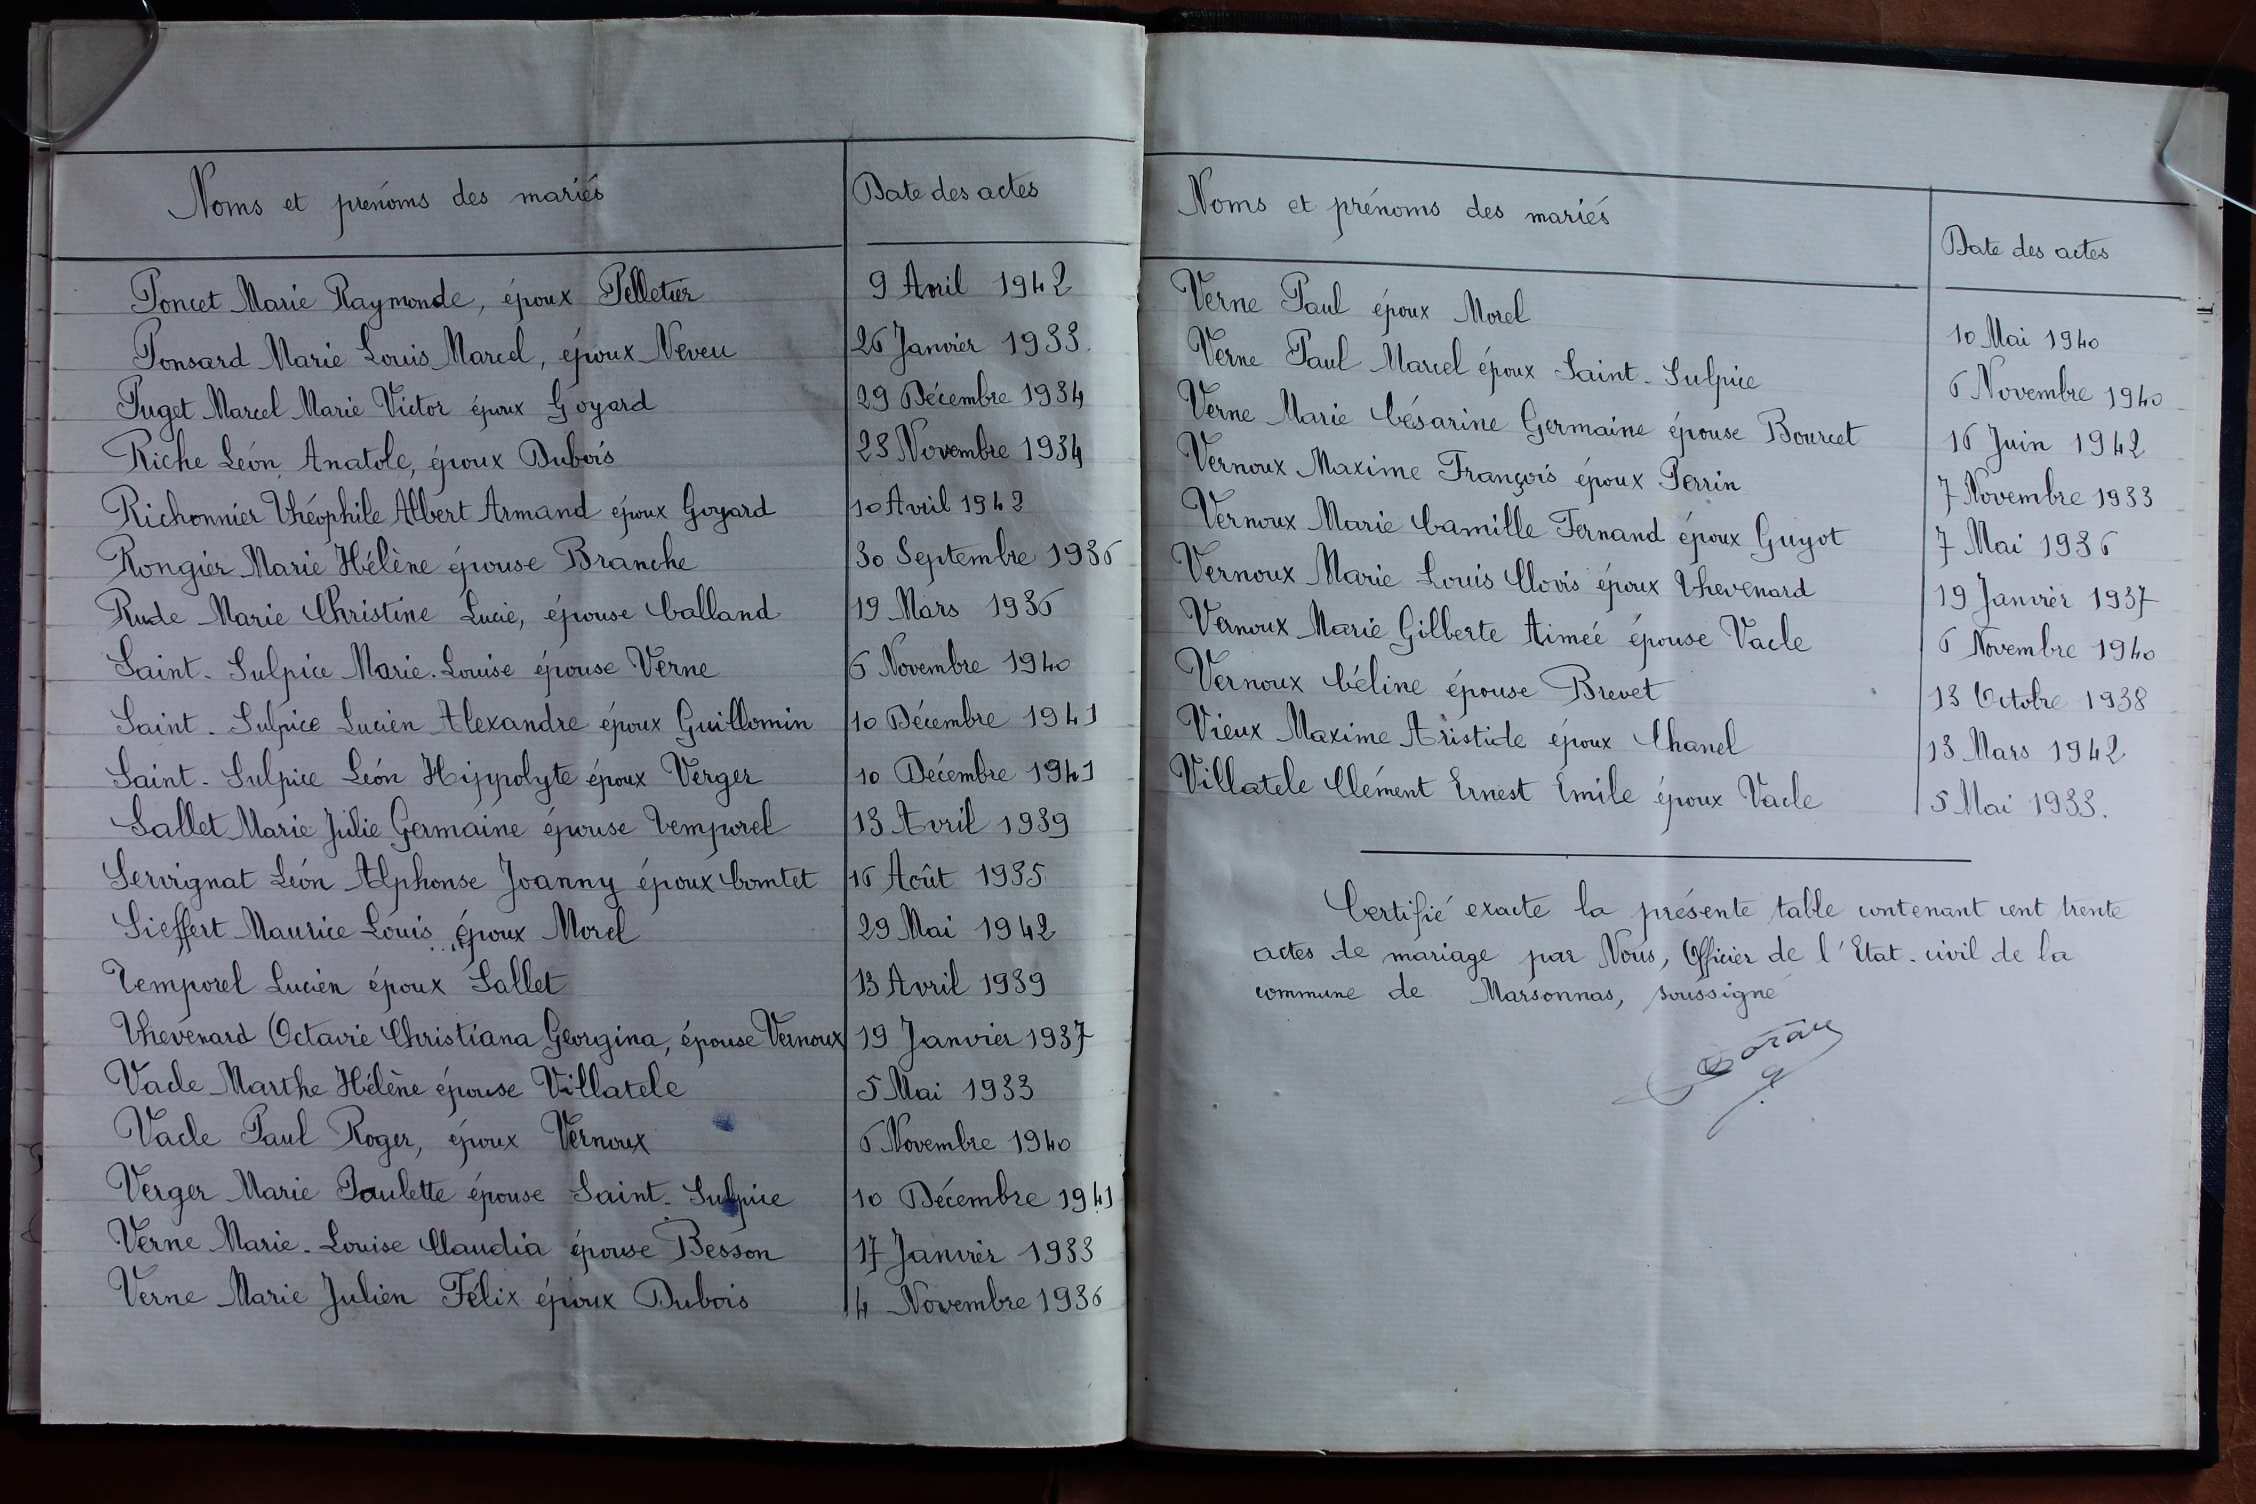 Noms et prénoms des mariés
Date des actes
Poncet Marie Raymonde, époux Pelletier 9 Avril 1942
Ponsard Marie Louis Marcel, époux Neveu 26 Janvier 1933
Puget Marcel Marie Victor époux Goyard 29 Décembre 1934
Riche Léon Anatole, époux Dubois 28 Novembre 1934
Richonnier Théophile Albert Armand époux Goyard 10 Avril 1942
Rongier Marie Hélène épouse Branche 30 Septembre 1936
Rude Marie Christine Lucie, épouse Calland 19 Mars 1936
Saint-Sulpice Marie-Louise épouse Verne 6 Novembre 1940
Saint-Sulpice Lucien Alexandre époux Guillomin 10 Décembre 1941
Saint-Sulpice Léon Hippolyte époux Verger 10 Décembre 1941
Sallet Marie Julie Germaine épouse Temporel 13 Avril 1939
Servignat Léon Alphonse Joanny époux Comtet 16 Août 1935
Sieffert Maurice Louis époux Morel 29 Mai 1942
Temporel Lucien époux Sallet 13 Avril 1939
Thevenard Octavie Christiana Georgina, épouse Vernoux 19 Janvier 1937
Vacle Marthe Hélène épouse Villatele 5 Mai 1933
Vacle Paul Roger, époux Vernoux 6 Novembre 1940
Verger Marie Paulette épouse Saint-Sulpice 10 Décembre 1941
Verne Marie-Louise Claudia épouse Besson 17 Janvier 1933
Verne Marie Julien Félix époux Dubois 4 Novembre 1936
Noms et prénoms des mariés
Date des actes
Verne Paul époux Morel 10 Mai 1940
Verne Paul Marcel époux Saint-Sulpice 6 Novembre 1940
Verne Marie Césarine Germaine épouse Bourcet 16 Juin 1942
Vernoux Maxime François époux Perrin 7 Novembre 1933
Vernoux Marie Camille Fernand époux Guyot 7 Mai 1936
Vernoux Marie Louis Clovis époux Thevenard 19 Janvier 1937
Vernoux Marie Gilberte Aimée épouse Vacle 6 Novembre 1940
Vernoux Céline épouse Brevet 13 Octobre 1938
Vieux Maxime Aristide époux Chanel 13 Mars 1942
Villatele Clément Ernest Emile époux Vacle 5 Mai 1933.
Certifié exacte la présente table contenant cent trente
actes de mariage par Nous, Officier de l'Etat-civil de la
commune de Marsonnas, soussigné